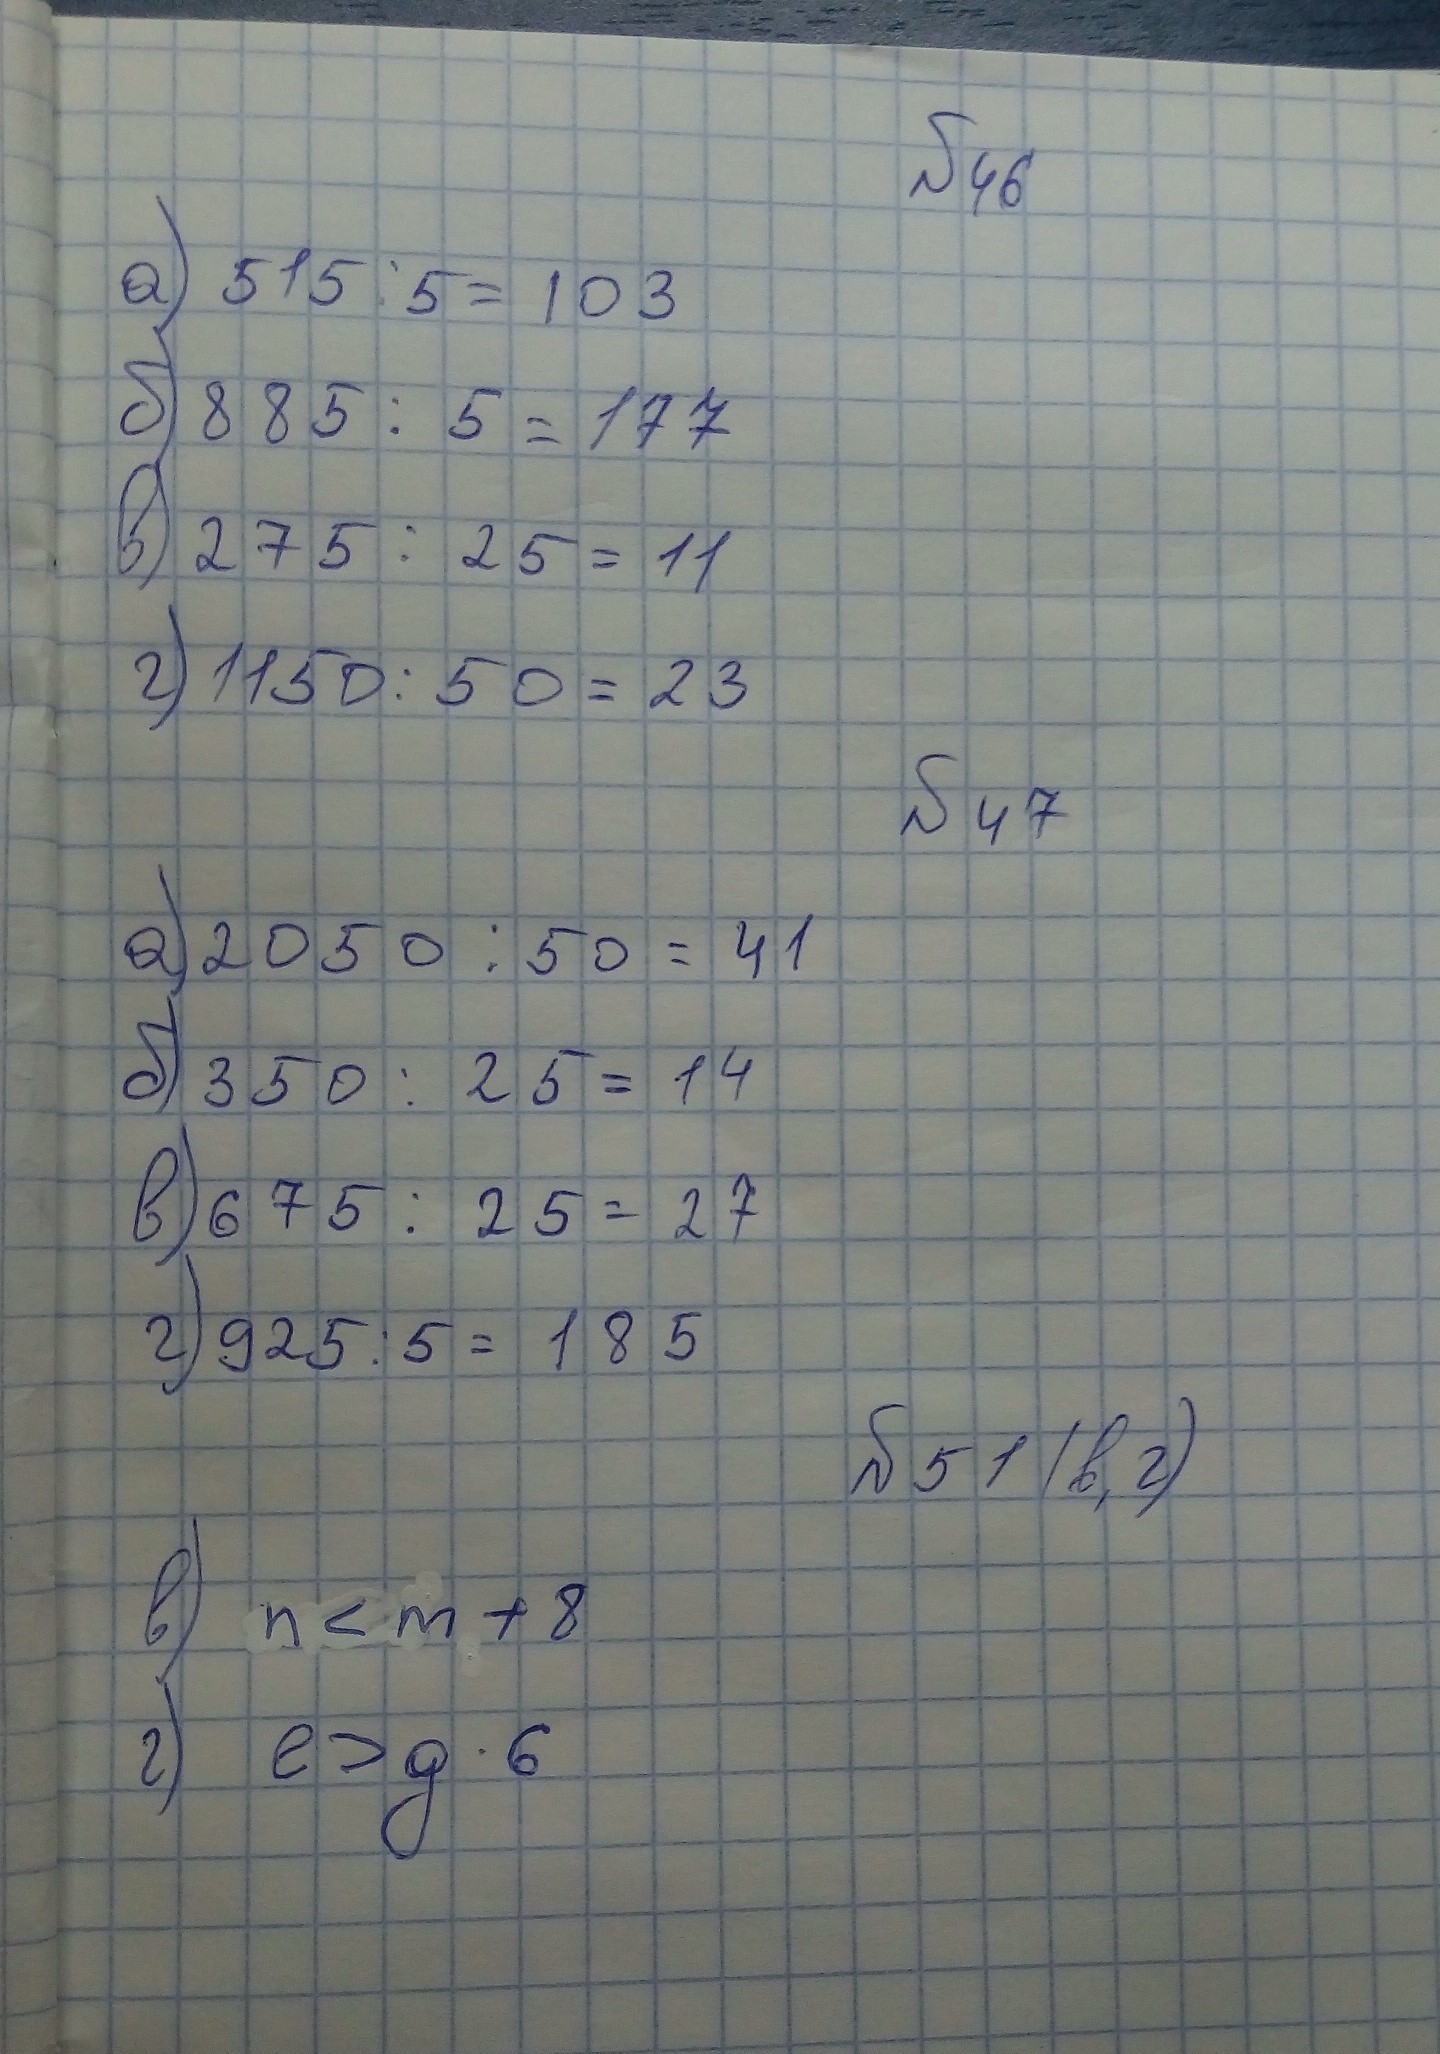 №46
а) 515:5=103
б) 885:5=177
в) 275:25=11
г) 1150:50=23
№47
а) 2050:50=41
б) 350:25=14
в) 675:25=27
г) 925:5=185
№51 (в,г)
в) n<m+8
г) e>g·6